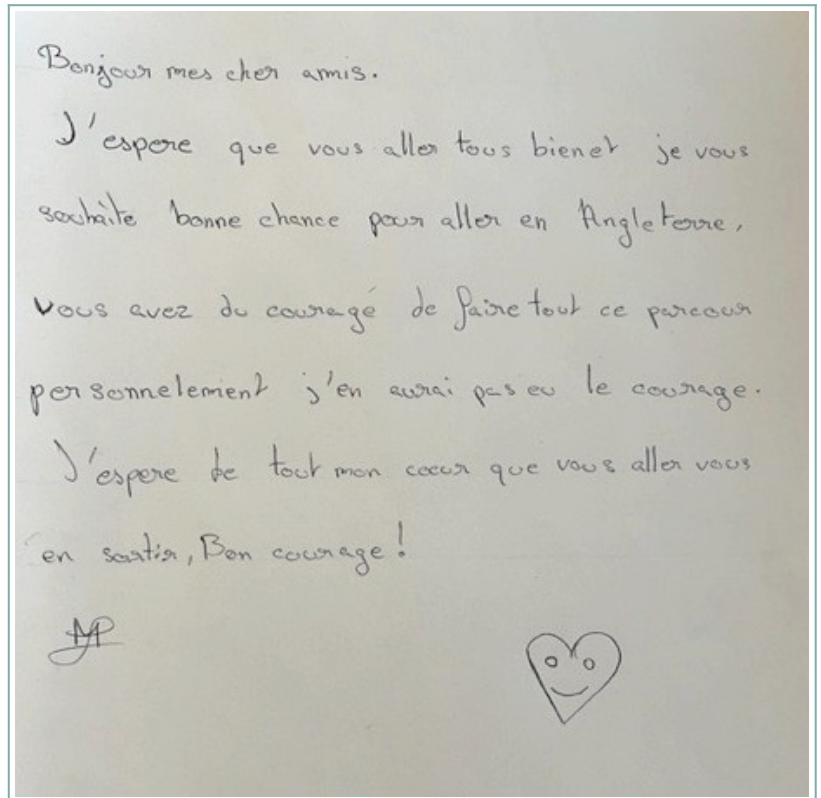 Bonjour mes cher amis.
J'espere que vous aller tous bien et je vous
souhaite bonne chance pour aller en Angleterre,
vous avez du courage de faire tout ce parcour
personnelement j'en aurai pas eu le courage.
J'espere de tout mon coeur que vous aller vous
en sortir, Bon courage !